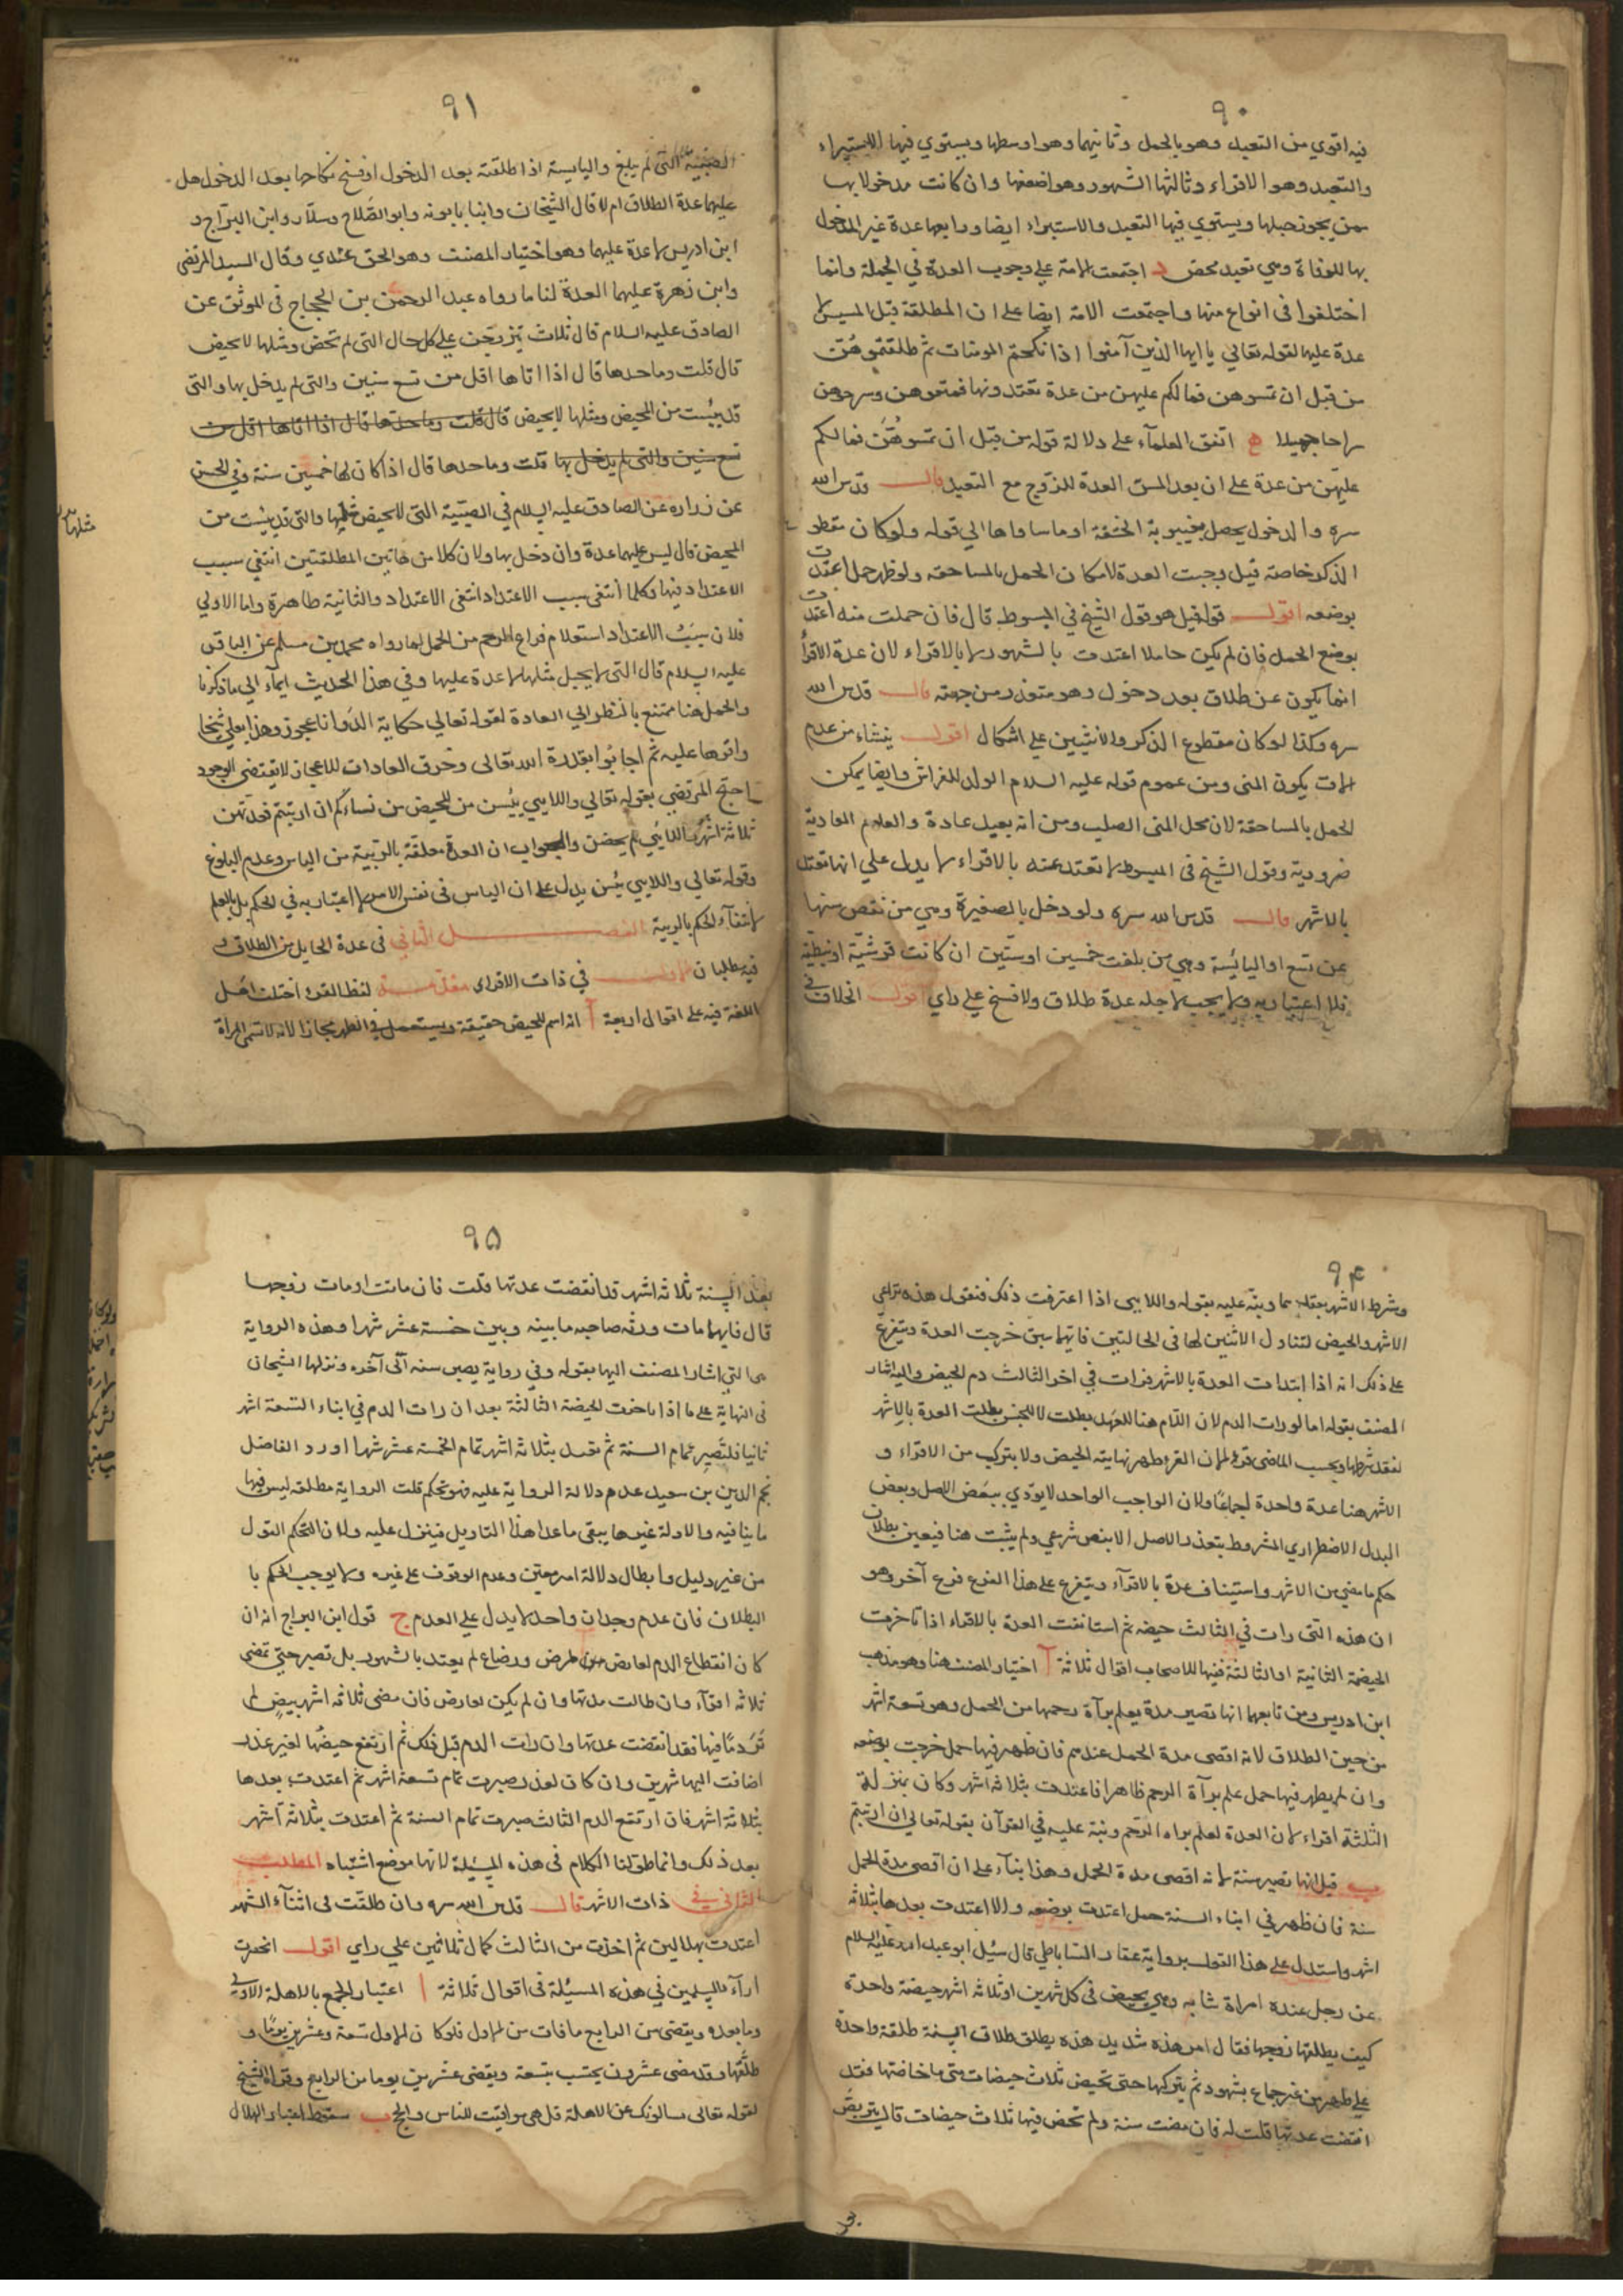 ٩٠
فيه اقوي من التعبد وهو بالحمل وثانيهما وهو اوسطها ويستوي فيها الاستبراء
والتعبد وهو الاقراء وثالثها الشهور وهو اضعفها وان كانت مدخولا بها
ممن يجوز حبلها ويستوي فيها التعبد والاستبراء ايضا ورابعها عدة غير المدخول
بها للوفاة وهي تعبد محض اجتمعت الامة علي وجوب العدة في الجملة وانما
اختلفوا في انواع منها واجتمعت الامة ايضا على ان المطلقة قبل المسيس لا
عدة عليها لقوله تعالي يا ايها الذين آمنوا اذا نكحتم المومنات ثم طلقتموهن
من قبل ان تمسوهن فمالكم عليهن من عدة تعتدونها فمتعوهن وسرحوهن
سراحا جميلا ه اتفق العلمآء على دلالة قوله من قبل ان تمسوهن فمالكم
عليهن من عدة على ان بعد المس العدة للزوج مع التعبد قال قدس الله
سره والدخول يحصل بغيبوبة الحشفة او ما ساواها الي قوله ولو كان مقطوع
الذكر خاصة قيل وجبت العدة لامكان الحمل بالمساحقه ولو ظهر حمل اعتدت
بوضعه اقول قوله قيل هو قول الشيخ في المبسوط قال فان حملت منه اعتدت
بوضع الحمل فان لم يكن حاملا اعتدت بالشهور لا بالاقراء لان عدة الاقرأ
انما يكون عن طلاق بعد دخول وهو متعذر من جهته قال قدس الله
سره وكذا لو كان مقطوع الذكر والانثيين على اشكال اقول ينشاء من عدم
يكون المنى ومن عموم قوله عليه السلام الولد للفراش وايضا يمكن
الحمل بالمساحقة لان محل المنى الصلب ومن انه بعيد عادة والعلوم العادية
ضرورية وقول الشيخ في المبسوط لا تعتد عنه بالاقراء لا يدل علي انها تعتد
بالاشهر قال قدس الله سره ولو دخل بالصغيرة وهي من نقص سنها
عن تسع او اليائسة وهي من بلغت خمسين او ستين ان كانت قرشية او نبطية
فلا اعتبار به ولا يجب لاجله عدة طلاق ولا فسخ علي راي اقول الخلاف في
٩١
الصبية التى لم يبلغ واليايسة اذا طلقته بعد الدخول او فسخ نكاحها بعد الدخول هل
عليهما عدة الطلاق ام لا قال الشيخان وابنا بابويه وابو الصلاح وسلار وابن البراج و
ابن ادريس لا عدة عليهما وهو اختيار المصنف وهو الحق عندي وقال السيد المرتضى
وابن زهرة عليهما العدة لنا ما رواه عبد الرحمن بن الحجاج في الموثق عن
الصادق عليه السلام قال ثلاث يتزوجن علي كل حال التى لم تحض ومثلها لا تحيض
قال قلت وما حدها قال اذا اتاها اقل من تسع سنين والتى لم يدخل بها والتى
قد يئست من المحيض ومثلها لا يحيض قال قلت وما حدها قال اذا اتاها اقل من
تسع سنين والتى لم يدخل بها قلت وما حدها قال اذا كان لها خمسين سنة وفي الحسن
عن زراره عن الصادق عليه السلام في الصبية التى لا تحيض مثلها والتى قد يئست من
المحيض قال ليس عليهما عدة وان دخل بها ولان كلا من هاتين المطلقتين انتفي سبب
الاعتداد فيها وكلما انتفى سبب الاعتداد انتفى الاعتداد والثانية ظاهرة واما الاولي
فلان سبب الاعتداد استعلام فراغ الرحم من الحمل لما رواه محمد بن مسلم عن الباقر
عليه السلام قال التى لا يحبل مثلها لا عدة عليها وفي هذا الحديث ايمآء الي ما ذكرنا
والحمل هنا ممتنع بالنظر الي العادة لقوله تعالي حكاية ءالد وانا عجوز وهذا بعلي شيخا
واقرها عليه ثم اجابوا بقدرة الله تعالى وخرق العادات للاعجاز لا يقتضى الوجود
احتج المرتضي بقوله تعالي واللايي يئسن من المحيض من نسائكم ان ارتبتم فعدتهن
ثلاثة اشهر واللائي لم يحضن والجواب ان العدة معلقة بالريبة من الياس وعدم البلوغ
وقوله تعالي واللايي يئسن يدل على ان الياس في نفس الامر لا اعتبار به في الحكم بل بالعلم
لانتفآء الحكم بالريبة الفصل الثاني في عدة الحايل من الطلاق و
فيه مطلبان الاول في ذات الاقراء مقدمة لفظ القرء اختلف اهل
اللغة فيه على اقوال اربعة آ انه اسم للحيض حقيقة ويستعمل في الطهر مجازا لانه لا تسمى المراة
مثلها
٩٤
وشرط الاشهر بفقده كما ونبه عليه بقوله واللايى اذا اعترفت ذلك فنقول هذه تراعي
الاشهر والحيض لتناول الاثنين لها في الحالتين فايهما سبق خرجت العدة ويتفرع
على ذلك انه اذا ابتدات العدة بالاشهر فرات في اخر الثالث دم الحيض واليه اشار
المصنف بقوله اما لو رات الدم لان اللام هنا للعهد بطلت لا للجنس بطلت العدة بالاشهر
لفقد شرطها ويحسب الماضى قرءا لان القرء طهر نهايته الحيض ولا يتركب من الاقراء و
الاشهر هنا عدة واحدة اجماعا ولان الواجب الواحد لا يؤدي ببعض الاصل وبعض
البدل الاضطراري المشروط بتعذر الاصل الا بنص شرعي ولم يثبت هنا فيعين بطلان
حكم ما مضي من الاشهر واستيناف عدة بالاقرآء ويتفرع على هذا الفرع فرع آخر وهو
ان هذه التى رات في الثالث حيضه ثم استانفت العدة بالاقراء اذا تاخرت
الحيضة الثانية او الثالثة ففيها للاصحاب اقوال ثلاثة آ اختيار المصنف هنا وهو مذهب
ابن ادريس ومن تابعهما انها تصبر مدة يعلم برآءة رحمها من الحمل وهو تسعة اشهر
من حين الطلاق لانه اقصى مدة الحمل عندهم فان ظهر فيها حمل خرجت بوضعه
وان لم يظهر فيها حمل علم برآءة الرحم ظاهرا فاعتدت بثلاثه اشهر وكان بمنزلة
الثلثة اقراء لان العدة لعلم براءة الرحم ونبة عليه في القرآن بقوله تعالي ان ارتبتم
ب قيل انها تصبر سنة لانه اقصى مدة الحمل وهذا بنآء على ان اقصى مدة الحمل
سنة فان ظهر في اثناء السنة حمل اعتدت بوضعه والا اعتدت بعدها بثلاثه
اشهر واستدل على هذا القول برواية عمار الساباطي قال سئل ابو عبد الله عليه السلام
عن رجل عنده امراة شابه وهي تحيض في كل شهرين او ثلاثه اشهر حيضة واحدة
كيف يطلقها زوجها فقال امر هذه شديد هذه يطلق طلاق السنة طلقة واحدة
على طهر من غير جماع بشهود ثم يتركها حتى تحيض ثلاث حيضات متى ما حاضتها فقد
انقضت عدتها قلت له فان مضت سنة ولم تحض فيها ثلاث حيضات قال يتربص
٩٥
بعد السنة ثلاثه اشهر قد انقضت عدتها قلت فان ماتت او مات زوجها
قال فايهما مات ورثه صاحبه ما بينه وبين خمسة عشر شهرا وهذه الرواية
هي التى اشار المصنف اليها بقوله وفي رواية يصبر سنه آلى آخره ونزلها الشيخان
في النهاية على ما اذا تاخرت الحيضة الثالثة بعد ان رات الدم في اثناء التسعة اشهر
ثانيا فلتصبر تمام السنة ثم تعتد بثلاثه اشهر تمام الخمسة عشر شهرا اورد الفاضل
نجم الدين بن سعيد عدم دلالة الرواية عليه فهو تحكم قلت الرواية مطلقه ليس فيها
ما ينافيه والادلة غيرها يبقى ما عدا هذا التاويل فينزل عليه ولان التحكم القول
من غير دليل وابطال دلالة امر معين وعدم الوقوف على غيره ولا يوجب الحكم با
البطلان فان عدم وجدان واحد لا يدل علي العدم ج قول ابن البراج انه ان
كان انقطاع الدم لعارض من مرض ورضاع لم يعتد بالشهور بل تصبر حتى تمضى
ثلاثه اقرآء وان طالت مدتها وان لم يكن لعارض فان مضى ثلاثه اشهر بيض لم
تر دمًا فيها فقد انقضت عدتها وان رات الدم قبل ذلك ثم ارتفع حيضها لغير عذر
اضافت اليها شهرين وان كان لعذر صبرت تمام تسعة اشهر ثم اعتدت بعدها
بثلاثة اشهر فان ارتفع الدم الثالث صبرت تمام السنة ثم اعتدت بثلاثه آشهر
بعد ذلك وانما طولنا الكلام في هذه المسئلة لانها موضع اشتباه المطلب
الثاني في ذات الاشهر قال قدس الله سره وان طلقت في اثنآء الشهر
اعتدت بهلالين ثم اخذت من الثالث كمال ثلاثين علي راي اقول انحصرت
ارآء المسلمين في هذه المسئلة في اقوال ثلاثة ا اعتبار الجمع بالاهلة الاول
وما بعده ويقضى من الرابع ما فات من الاول فلو كان الاول تسعة وعشرين يوما و
طلقها وقد مضى عشرون يحتسب بتسعة ويقضى عشرين يوما من الرابع وقواه الشيخ
لقوله تعالى يسالونك عن الاهلة قل هي مواقيت للناس والحج ب سقوط اعتبار الهلال